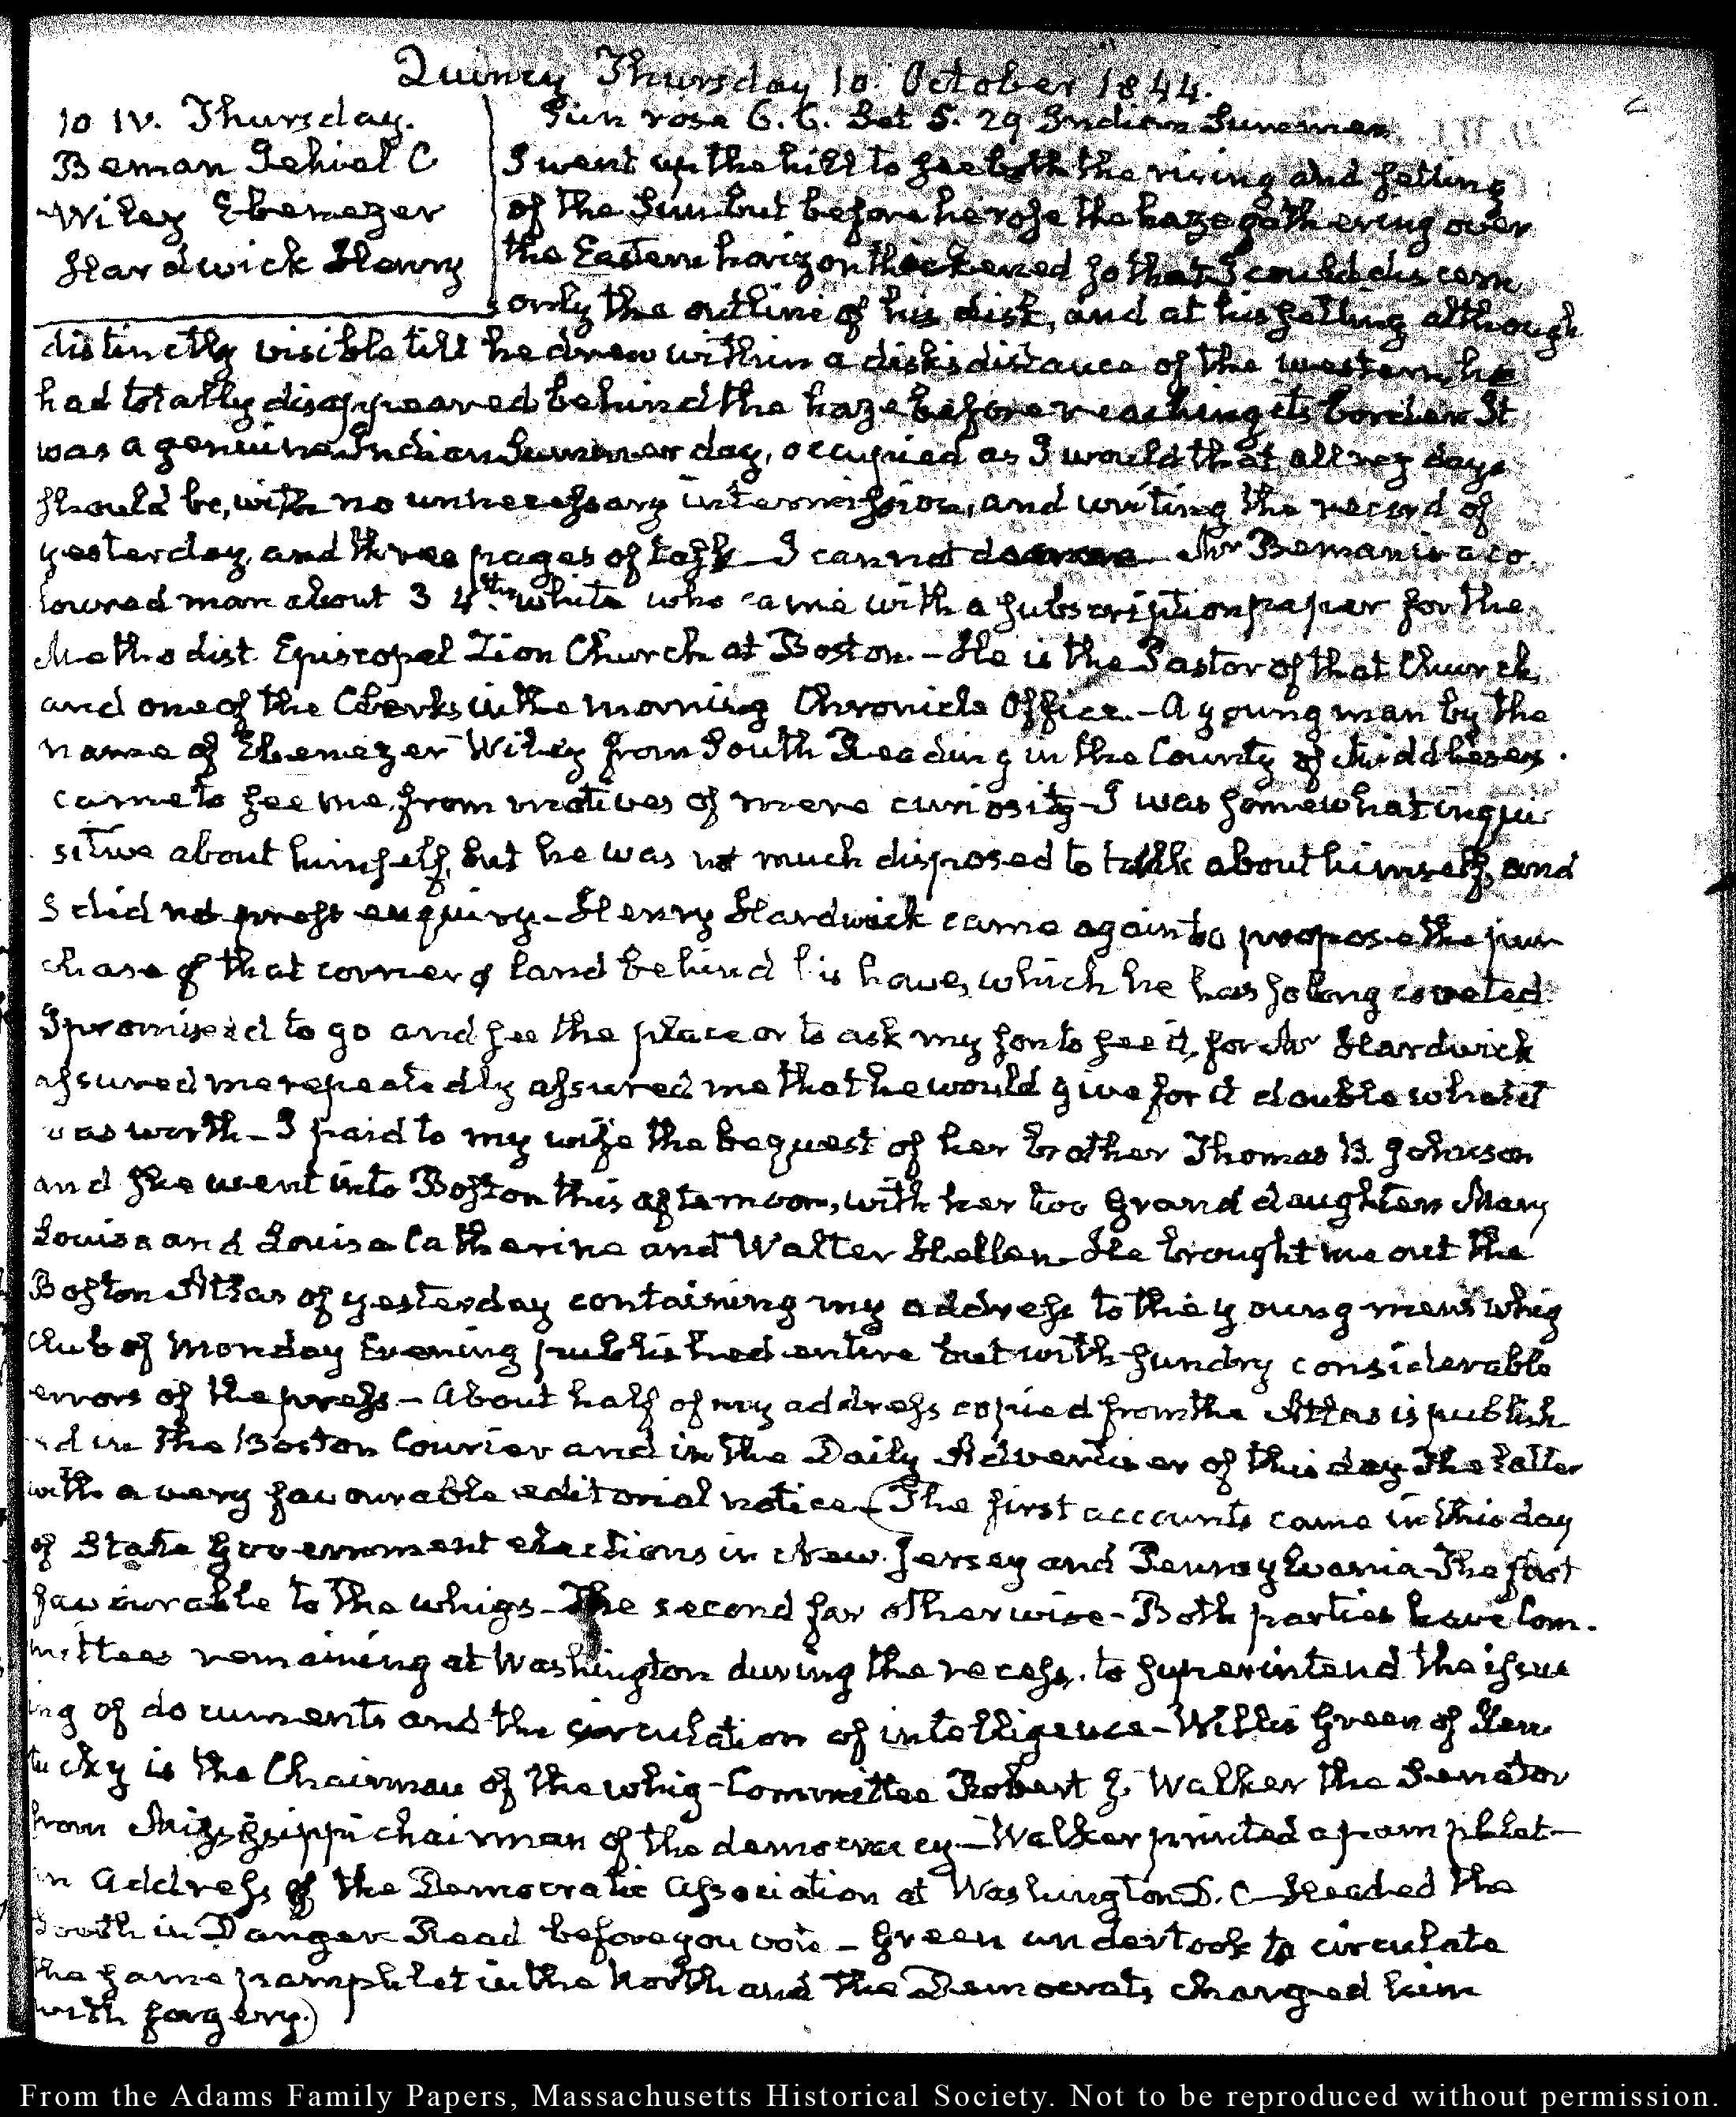 Quincy Thursday 10. October 1844.
10 IV. Thursday.
Beman Jehiel C
Wiley Ebenezer
Hardwick Henry
Sun rose 6. 6. Set 5. 29 Indian Summer
I went up the hill to see both the rising and setting
of the Sun but before he rose the haze gathering over
the Eastern horizon thickened so that I could discern
only the outline of his disk, and at his setting although
distinctly visible till he drew within a disk's distance of the western, he
had totally disappeared behind the haze before reaching its border It
was a genuine Indian Summer day, occupied as I would that all my days
should be, with no unnecessary intermission, and writing the record of
yesterday, and three pages of task I cannot do more Mr Beman is a co
loured man about 3 4ths. white who came with a subscription paper for the
Methodist Episcopal Zion Church at Boston. - He is the Pastor of that Church,
and one of the Clerks in the morning Chronicle Office. - A young man by the
name of Ebenezer Wiley from South Reading in the County of Middlesex.
came to see me, from motives of mere curiosity - I was somewhat inqui
sitive about himself, but he was not much disposed to talk about himself, and
I did not press enquiry - Henry Hardwick came again to propose the pur
chase of that corner of land behind his house, which he has so long coveted
I promised to go and see the place or to ask my son to see it, for Mr Hardwick
assured me repeatedly assured me that he would give for it double what it
was worth - I paid to my wife the bequest of her brother Thomas B. Johnson
and she went into Boston this afternoon, with her two Grand daughters Mary
Louisa and Louisa Catherine and Walter Hellen - He brought me out the
Boston Atlas of yesterday containing my address to the young men's whig
Club of Monday Evening published entire but with sundry considerable
errors of the press - About half of my address copied from the Atlas is publish
ed in the Boston Courier and in the Daily Advertiser of this day The latter
with a very favourable editorial notice - (The first accounts came in this day
of State Government elections in New Jersey and Pennsylvania - The first
favourable to the whigs - The second far otherwise - Both parties have Com.
mittees remaining at Washington during the recess, to superintend the issue
ing of documents and the circulation of intelligence - Willis Green of Ken
tucky is the Chairman of the whig - Committee Robert J. Walker the Senator
from Mississippi chairman of the democracy - Walker printed a pamphlet -
an Address of the Democratic Association at Washington D. C - Headed the
South in Danger Read before you vote - Green undertook to circulate
the same pamphlet in the North and the Democrats charged him
with forgery.)
From the Adams Family Papers, Massachusetts Historical Society. Not to be reproduced without permission.